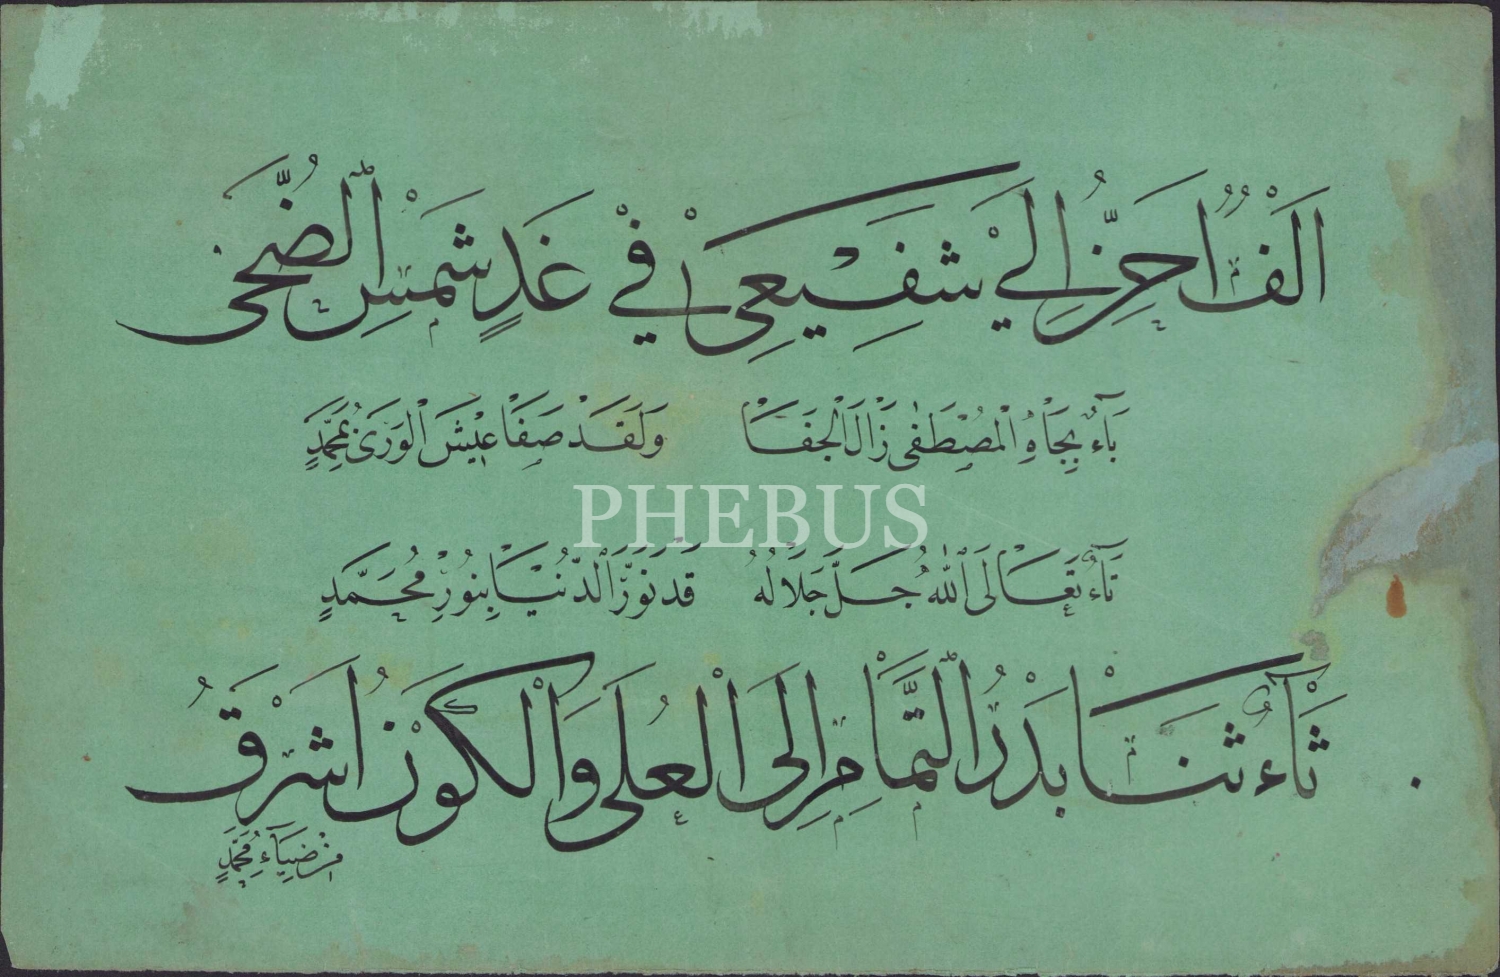 اَلِفٌ اَحِنُّ اِلَى شَفِيْعِى فِيْ غَدٍ شَمْسِ الضُّحَى
بَاءٌ بِجَاهِ الْمُصْطَفٰى زَالَ الْجَفَا وَلَقَدْ صَفَا عَيْشُ الْوَرَى بِمُحَمَّدٍ
PHEBUS
تَاءٌ تَعَالَى اللّٰهُ جَلَّ جَلَالُهُ قَدْ نَوَّرَ الدُّنْيَا بِنُوْرِ مُحَمَّدٍ
ثَاءٌ ثَنَا بَدْرُ التَّمَامِ اِلَى الْعُلَى وَالْكَوْنُ اَشْرَقَ
مِنْ ضِيَاءِ مُحَمَّدٍ